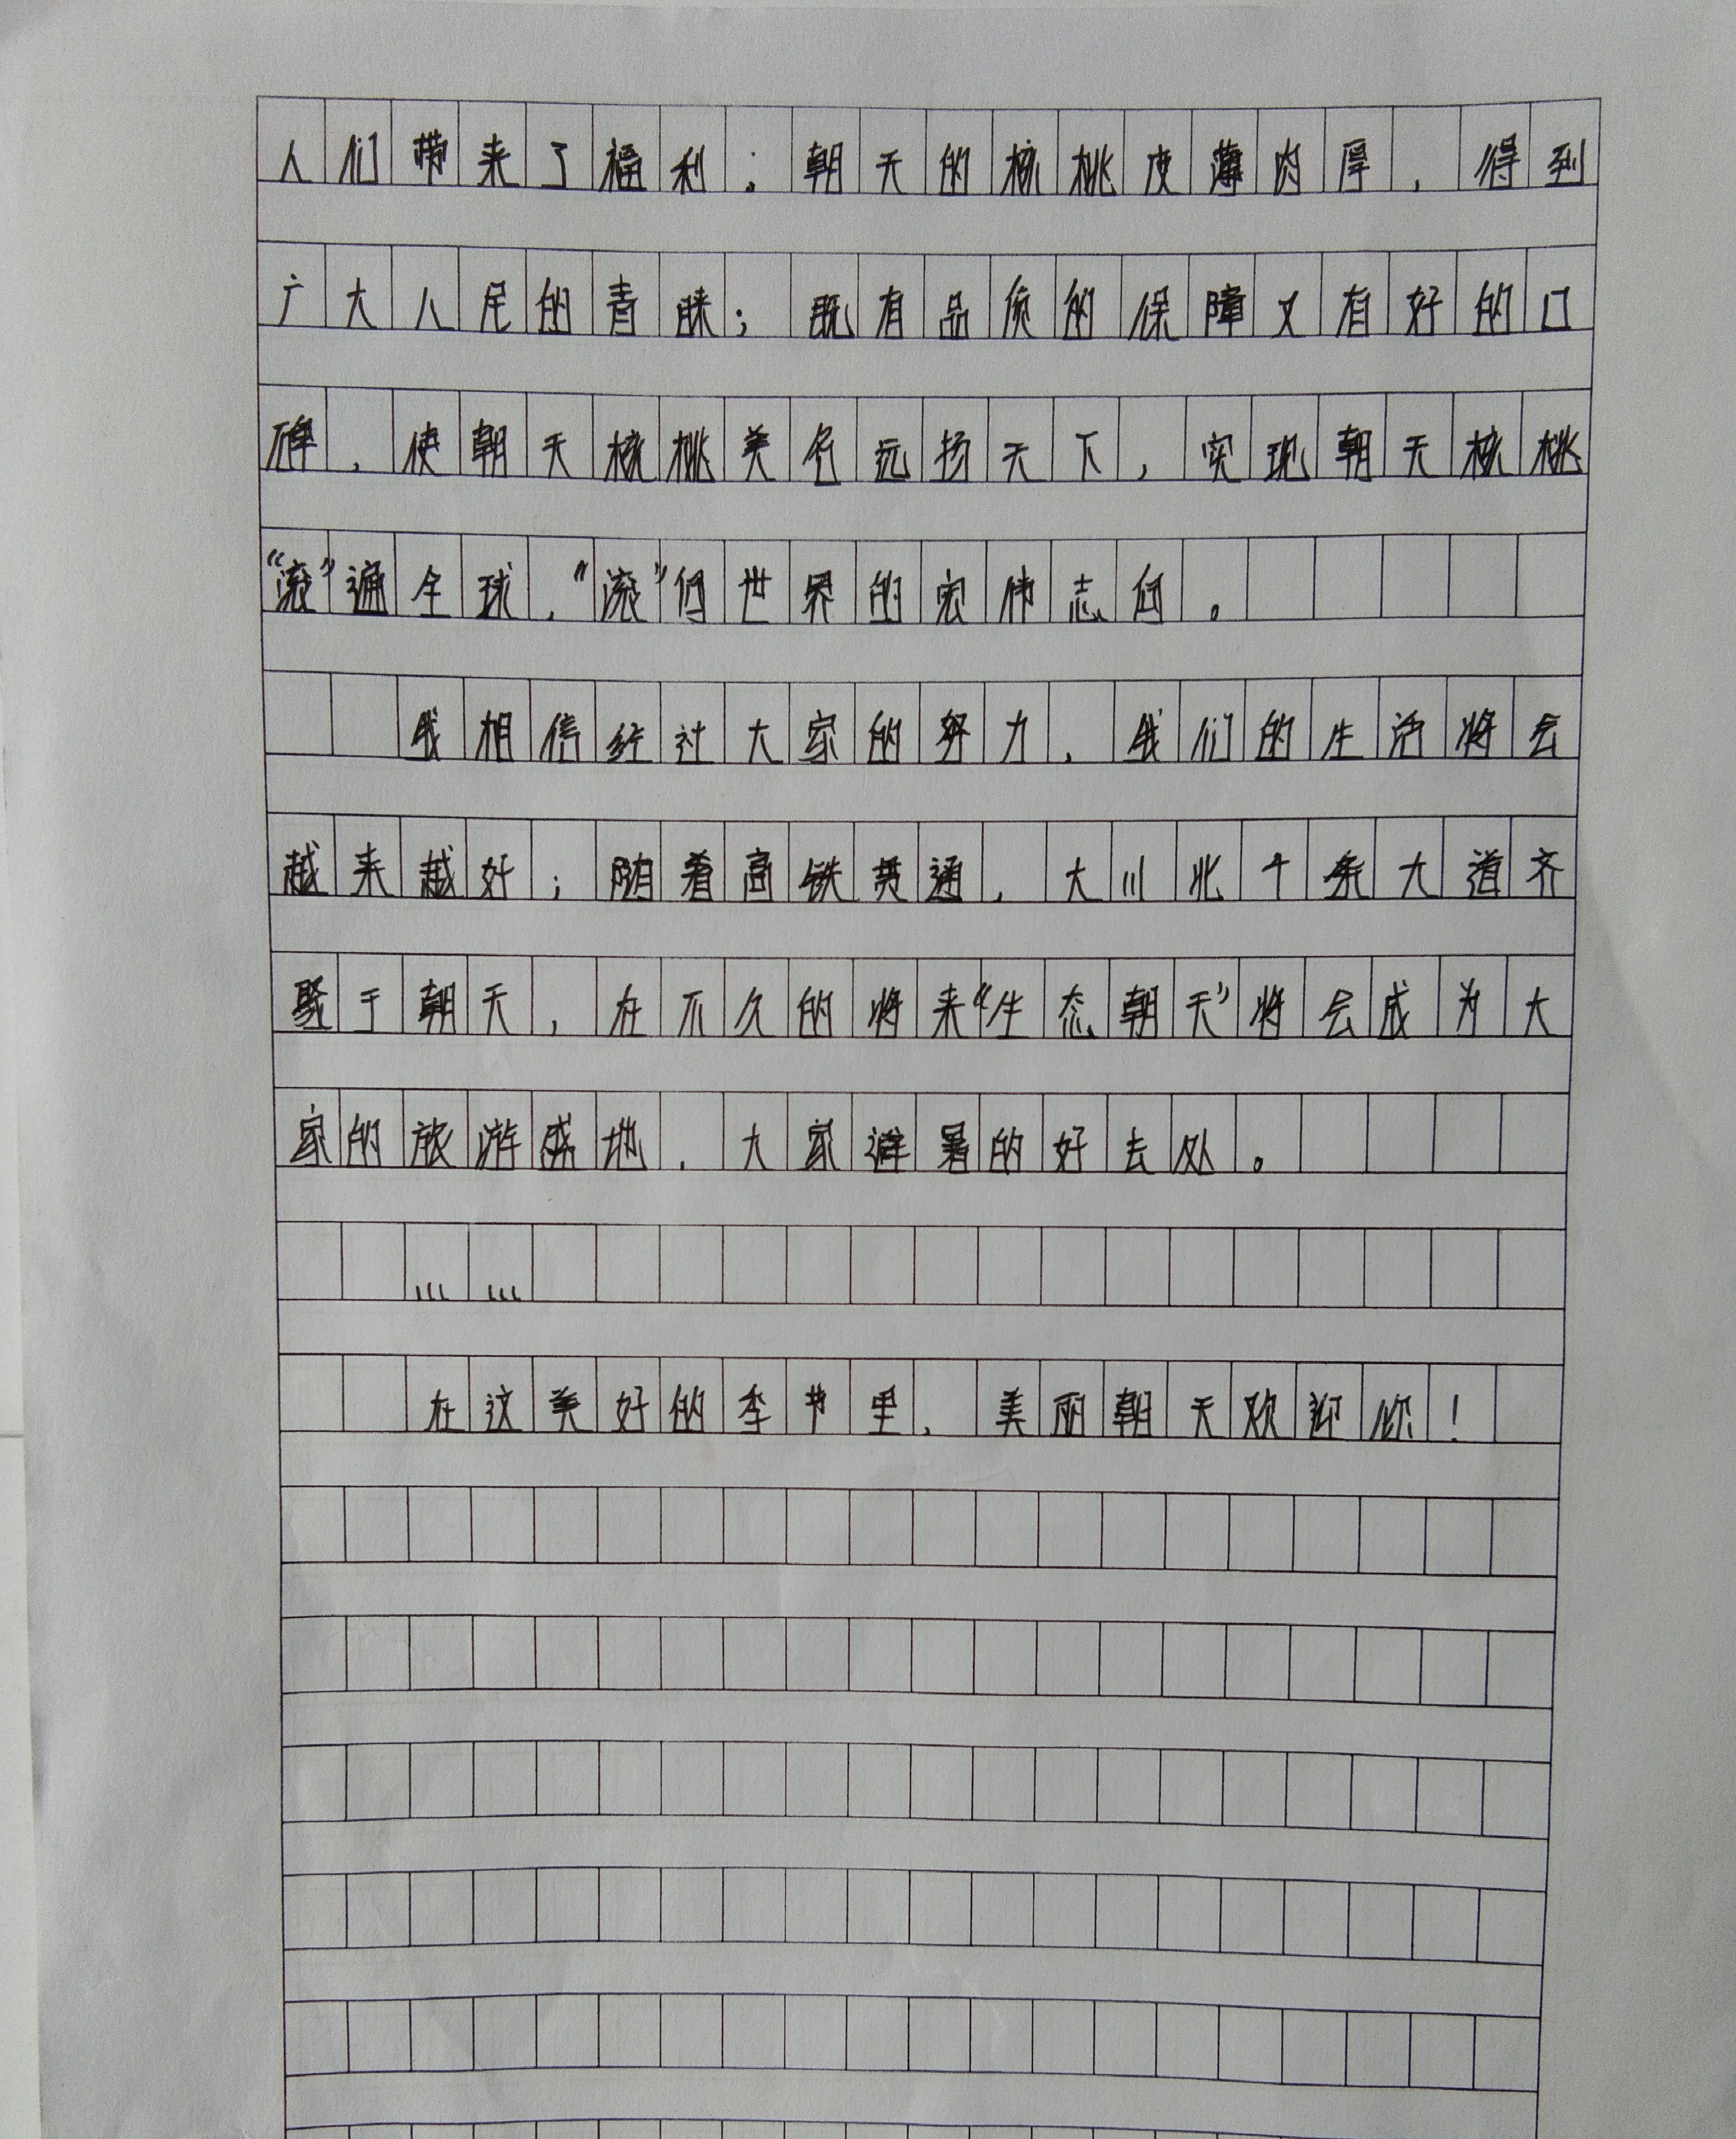 人们带来了福利；朝天的核桃皮薄肉厚，得到
广大人民的青睐；既有品质的保障又有好的口
碑，使朝天核桃美名远扬天下，实现朝天核桃
“滚”遍全球，“滚”向世界的宏伟志向。
我相信经过大家的努力，我们的生活将会
越来越好；随着高铁贯通，大川北十条大道齐
聚于朝天，在不久的将来“生态朝天”将会成为大
家的旅游盛地，大家避暑的好去处。
……
在这美好的季节里，美丽朝天欢迎你！